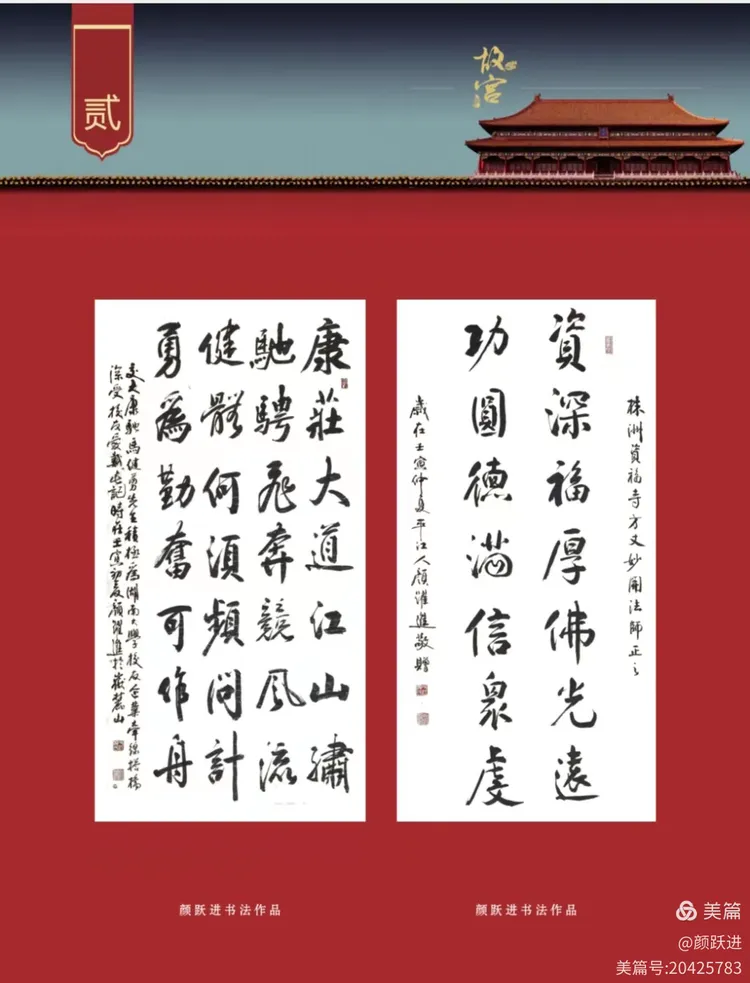 贰
故宫
株洲資福寺方丈妙開法師正之
資深福厚佛光遠
功圓德滿信衆虔
歲在壬寅仲夏平江人顏躍進敬贈
康莊大道江山繡
馳騁飛奔競風流
健骼何須頻問計
勇爲勤奮可作舟
大康馳馬健勇先生積極爲湖南大學校友企業牽線搭橋
深受校友愛戴 記時在壬寅初夏顏躍進於嶽麓山
颜跃进书法作品
颜跃进书法作品
美篇
@颜跃进
美篇号:20425783